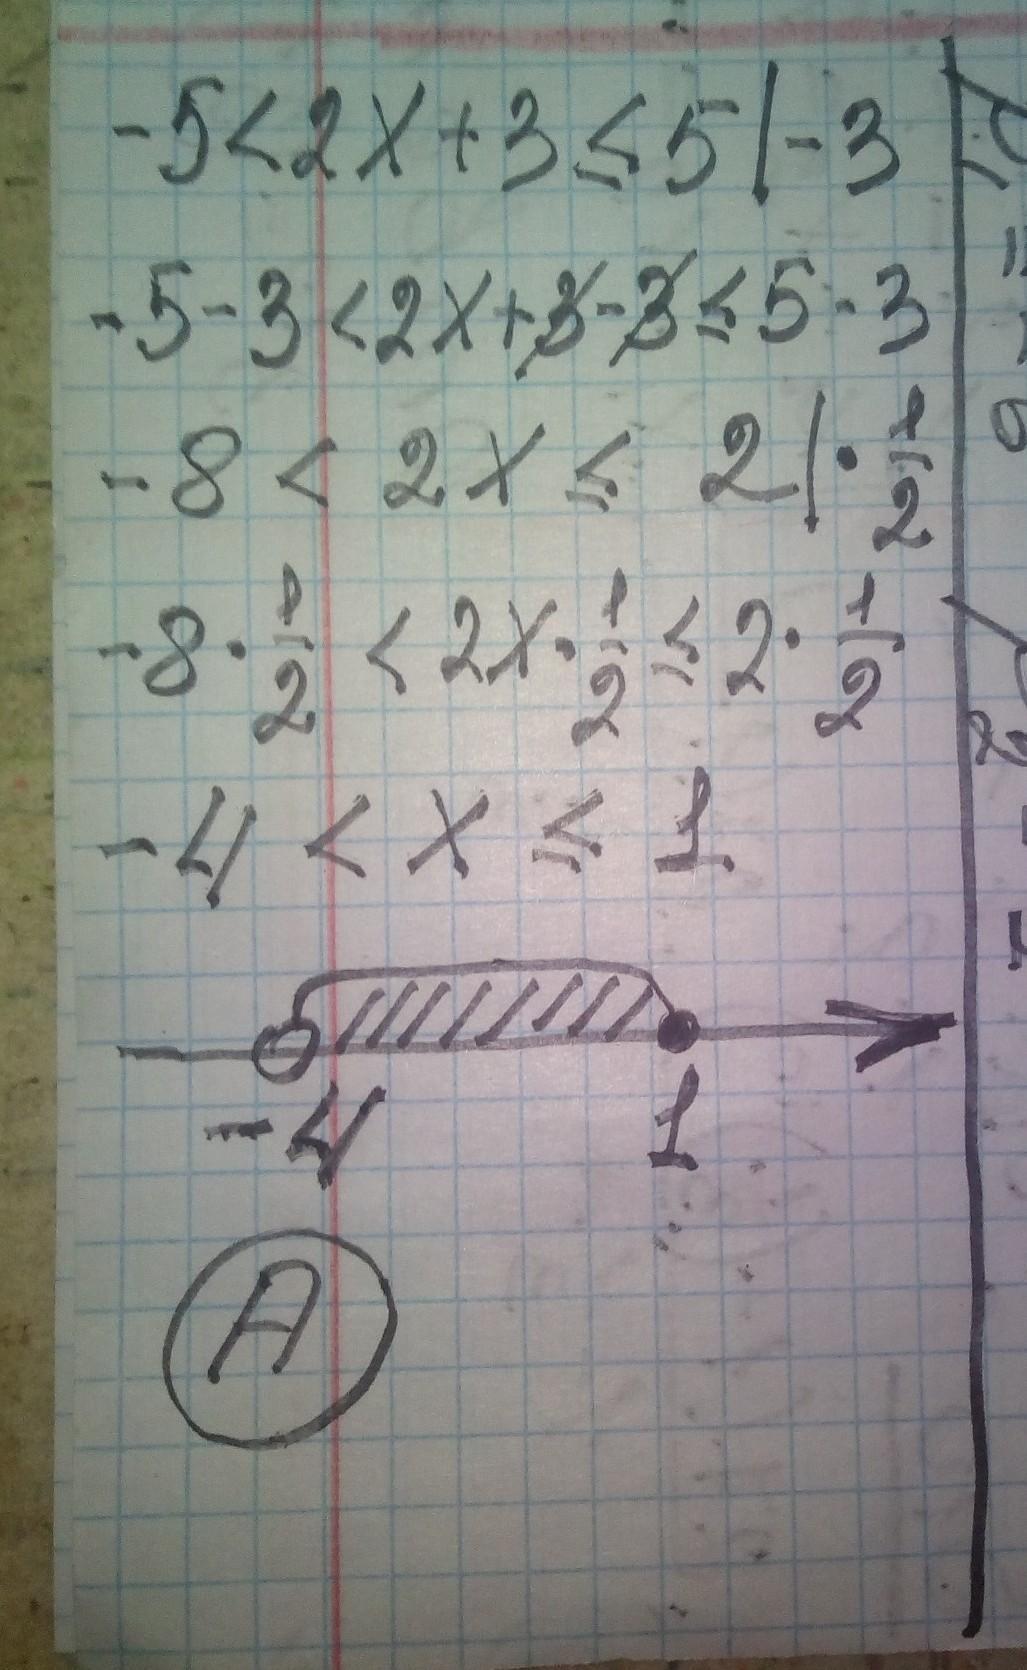 -5<2x+3≤5|-3
-5-3<2x+3-3≤5-3
-8 < 2x ≤ 2|·1/2
-8·1/2 < 2x·1/2 ≤ 2·1/2
-4 < x ≤ 1
-4 1
A